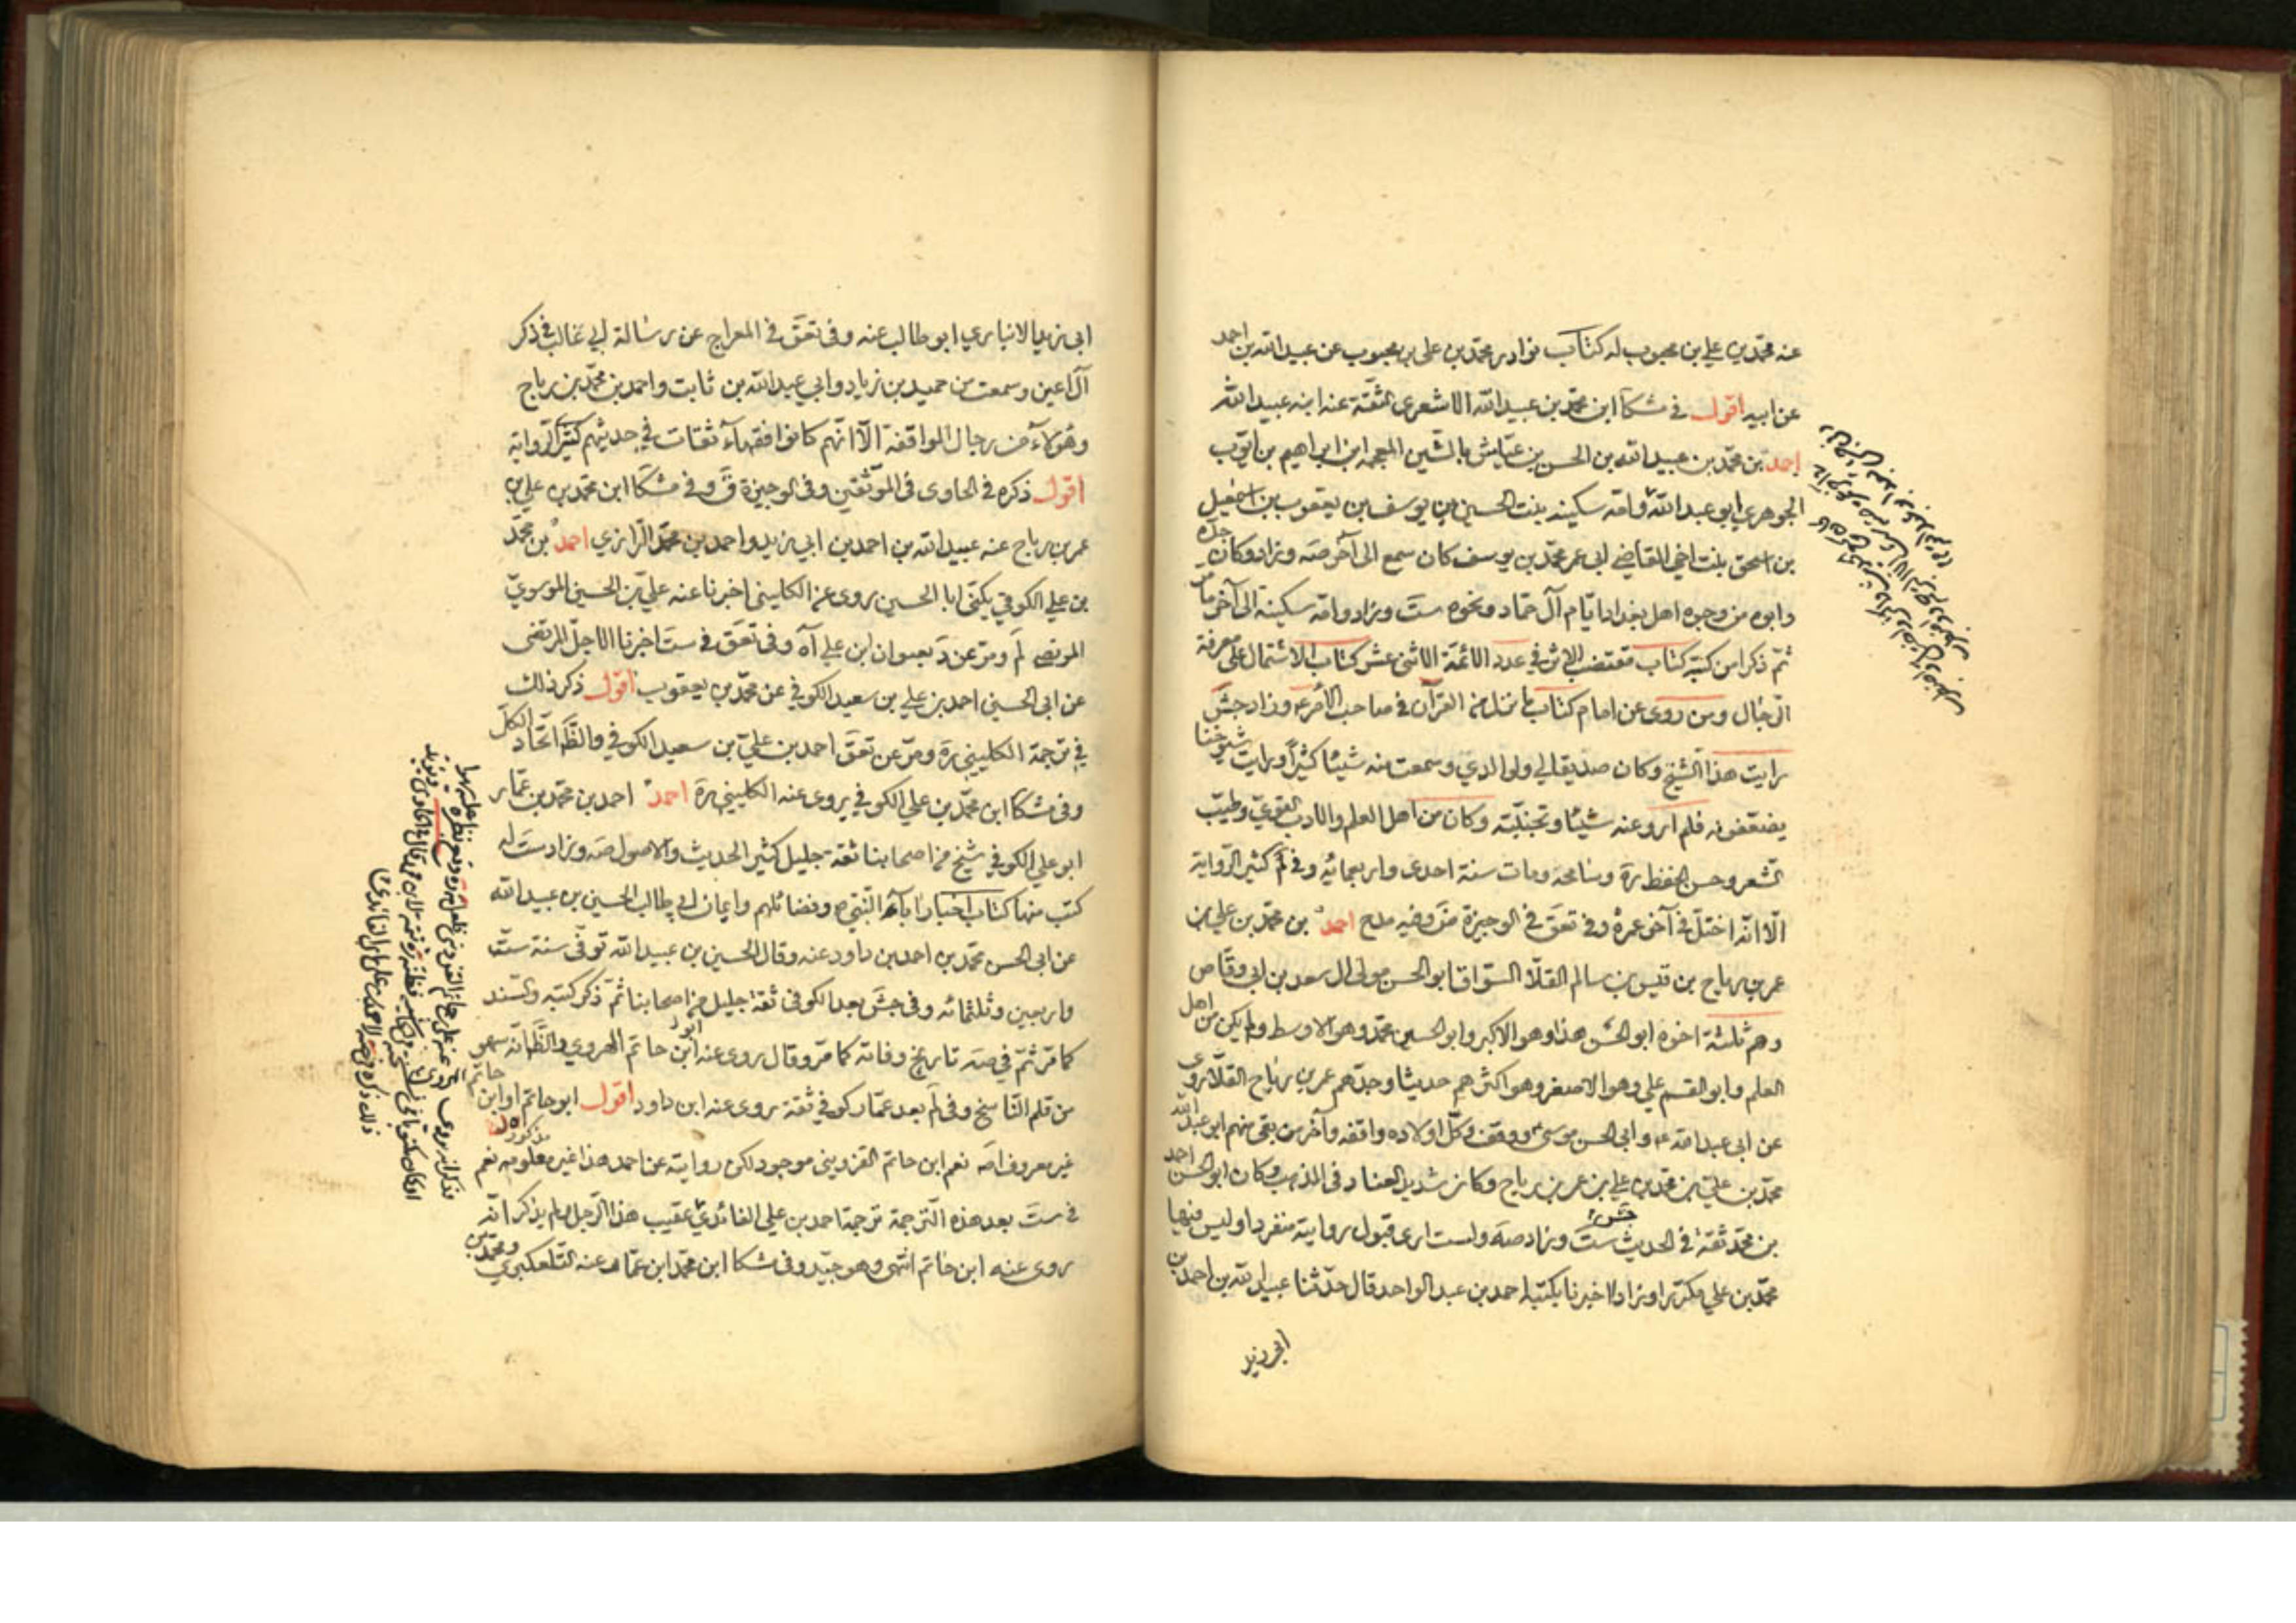 عنه محمّد بن علي بن محبوب له كتاب نوادر محمّد بن علي بن محبوب عن عبيد الله بن احمد
عن ابيه اقول في مشكا ابن محمّد بن عبيد الله الاشعري الثقة عنه ابنه عبيد الله
احمد بن محمّد بن عبيد الله بن الحسن بن عيّاش بالشين المعجمه ابن ابراهيم بن ايّوب
الجوهري ابو عبد الله وامّه سكينه بنت الحسين بن يوسف بن يعقوب بن اسمعيل
بن اسحق بنت اخي القاضي ابي عمر محمّد بن يوسف كان سمع الى آخر صه وزاد وكان جدّه
وابوه من وجوه اهل بغداد ايّام آل حمّاد ونحوه ست وزاد وامّه سكينة الى آخر ما مر
ثمّ ذكر من كتبه كتاب مقتضب الاثر في عدد الائمّة الاثنى عشر كتاب الاشتمال على معرفة
الرّجال ومن روى عن امام امام كتاب ما نزل من القرآن في صاحب الامر ع وزاد جش
رايت هذا الشيخ وكان صديقا لي ولوالدي وسمعت منه شيئا كثيرا ورايت شيوخنا
يضعّفونه فلم ارو عنه شيئا وتجنّبته وكان من اهل العلم والادب القوي وطيّب
الشعر وحسن الخط ره وسامحه ومات سنة احدى واربعمائه وفي لم كثير الرّواية
الّا انّه اختلّ في آخر عمره وفي تعق في الوجيزة ض وفيه مدح احمد بن محمّد بن علي بن
عمر بن رباح بن قيس بن سالم القلّا السوّاق ابو الحسن مولى ال سعد بن ابي وقّاص
وهم ثلثة اخوه ابو الحسن هذا وهو الاكبر وابو الحسين محمّد وهو الاوسط ولم يكن من اهل
العلم وابو القسم علي وهو الاصغر وهو اكثرهم حديثا وجدّهم عمر بن رباح القلّا روى
عن ابي عبد الله ع وابي الحسن موسى ع ووقف وكلّ اولاده واقفه وآخر من بقي منهم ابو عبد الله
محمّد بن عليّ بن محمّد بن علي بن عمر بن رباح وكان شديد العناد في المذهب وكان ابو الحسن احمد
بن محمّد ثقة في الحديث ست جش وزاد صه ولست ارى قبول روايته منفردا وليس فيها
محمّد بن علي مكرّرا وزادا اخبرنا بكتبه احمد بن عبد الواحد قال حدّثنا عبيد الله بن احمد بن
ابي زيد
ابي زيد الانباري ابو طالب عنه وفي تعق في المعراج عن رسالة ابي غالب في ذكر
آل اعين وسمعت من حميد بن زياد وابي عبد الله بن ثابت واحمد بن محمّد بن رباح
وهؤلاء من رجال الواقفة الّا انّهم كانوا فقهاء ثقات في حديثهم كثيري الرواية
اقول ذكره في الحاوي في الموثّقين وفي الوجيزة ق وفي مشكا ابن محمّد بن علي بن
عمر بن رباح عنه عبيد الله بن احمد بن ابي زيد واحمد بن محمّد الزراري احمد بن محمّد
بن علي الكوفي يكنّى ابا الحسين روى عن الكليني اخبرنا عنه عليّ بن الحسين الموسويّ
المرتضى لم ومرّ عن د بعنوان ابن علي آه وفي تعق في ست اخبرنا الاجلّ المرتضى
عن ابي الحسين احمد بن علي بن سعيد الكوفي عن محمّد بن يعقوب اقول ذكر ذلك
في ترجمة الكليني ره ومرّ عن تعق احمد بن عليّ بن سعيد الكوفي والظّ اتّحاد الكلّ
وفي مشكا ابن محمّد بن علي الكوفي يروى عنه الكليني ره احمد احمد بن محمّد بن عمّار
ابو علي الكوفي شيخ من اصحابنا ثقة جليل كثير الحديث والاصول صه وزاد ست له
كتب منها كتاب اخبار اباء النّبي ص وفضائلهم وايمان ابي طالب الحسين بن عبيد الله
عن ابي الحسن محمّد بن احمد بن داود عنه وقال الحسين بن عبيد الله توفّى سنة ستّ
واربعين وثلثمائه وفي جش بعد الكوفي ثقة جليل من اصحابنا ثمّ ذكر كتبه والسند
كما مرّ ثمّ في صه تاريخ وفاته كما مرّ وقال روى عنه ابن حاتم الهروي والظّ انّه سهو
من قلم النّاسخ وفي لم بعد عمّار كوفي ثقة روى عنه ابن داود اقول ابو حاتم او ابن حاتم
غير معروف اصه نعم ابن حاتم القزويني موجود لكن روايته عن احمد هذا غير معلومه نعم
في ست بعد هذه الترجمة ترجمة احمد بن علي الفائديّ عقيب هذا الرّجل
روى عنه ابن حاتم انتهى وهو جيّد وفي مشكا ابن محمّد ابن عمّار عنه التلعكبري ومحمّد بن